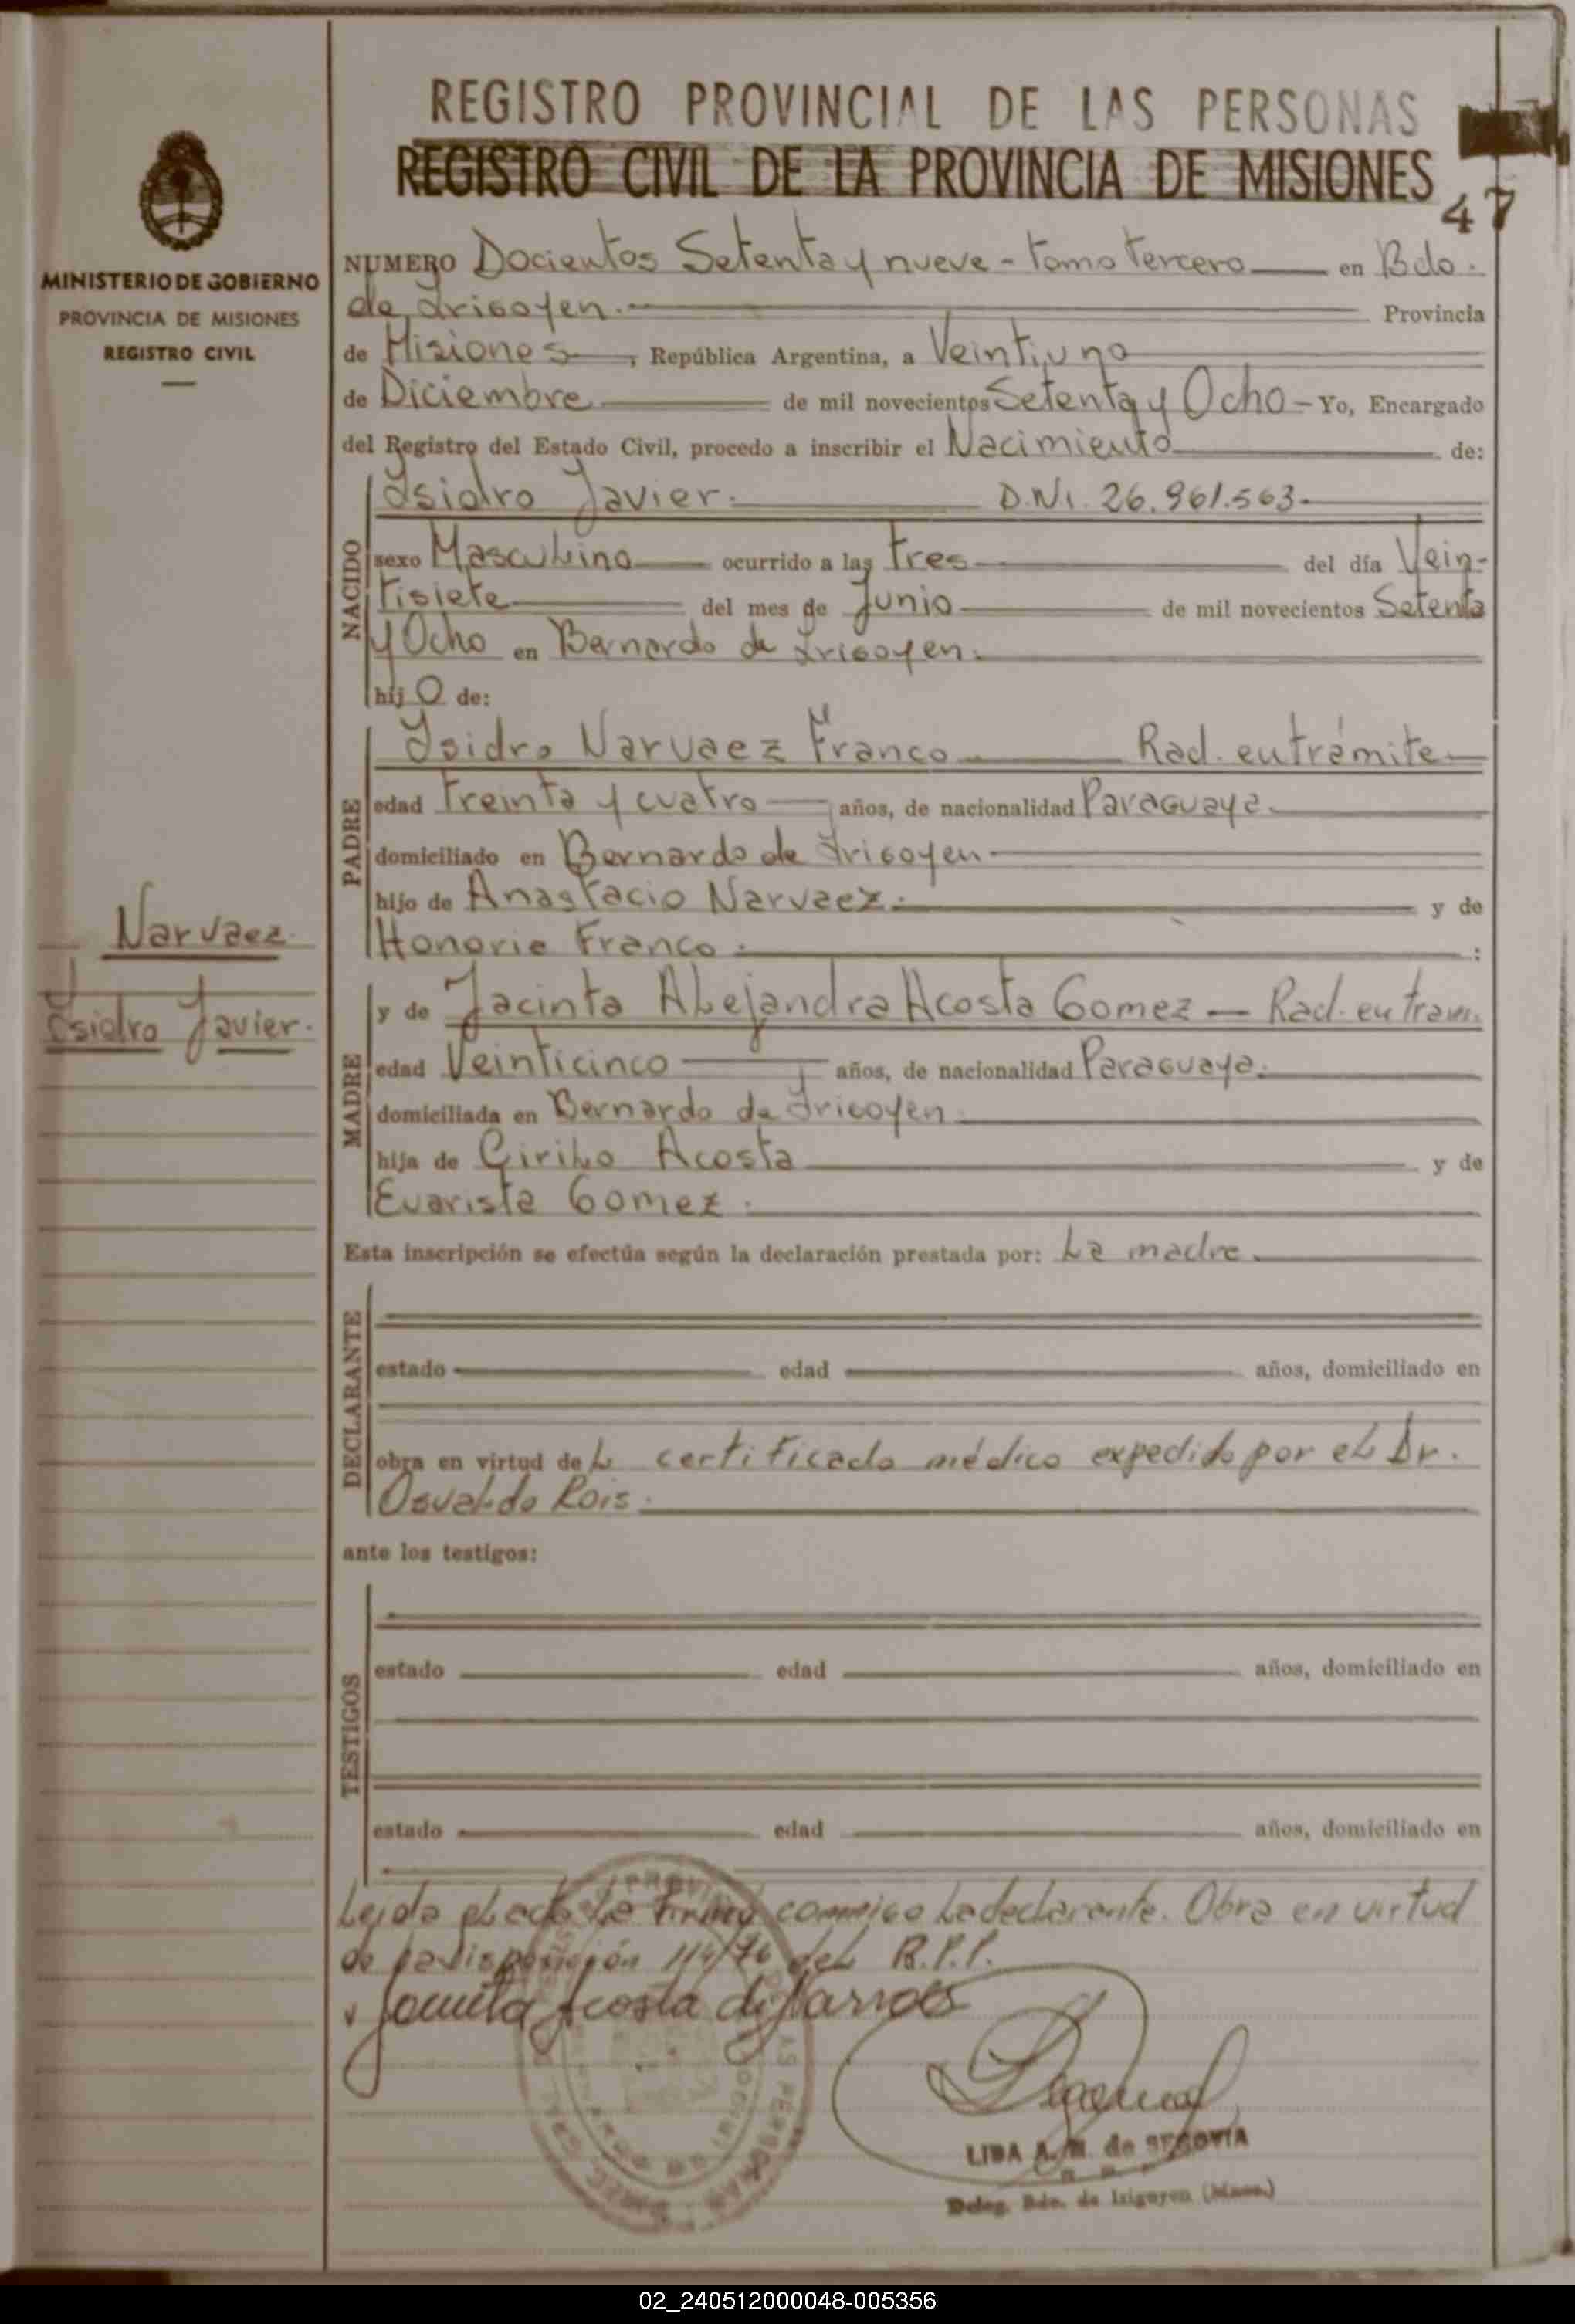 REGISTRO PROVINCIAL DE LAS PERSONAS
REGISTRO CIVIL DE LA PROVINCIA DE MISIONES
47
MINISTERIO DE GOBIERNO
PROVINCIA DE MISIONES
REGISTRO CIVIL
NUMERO Docientos Setenta y nueve - tomo tercero en Bdo.
de Irigoyen. Provincia
de Misiones, República Argentina, a Veintiuno
de Diciembre de mil novecientos Setenta y Ocho - Yo, Encargado
del Registro del Estado Civil, procedo a inscribir el Nacimiento de:
NACIDO
Isidro Javier. D.N.I. 26.961.563.
sexo Masculino ocurrido a las tres del día Vein-
tisiete del mes de Junio de mil novecientos Setenta
y Ocho en Bernardo de Irigoyen.
hij O de:
PADRE
Isidro Narvaez Franco Rad. en trámite
edad treinta y cuatro años, de nacionalidad Paraguaya.
domiciliado en Bernardo de Irigoyen
hijo de Anastacio Narvaez. y de
Honoria Franco.:
Narvaez
Isidro Javier.
MADRE
y de Jacinta Alejandra Acosta Gomez - Rad. en tram.
edad Veinticinco años, de nacionalidad Paraguaya.
domiciliada en Bernardo de Irigoyen.
hija de Cirilo Acosta y de
Evarista Gomez.
Esta inscripción se efectúa según la declaración prestada por: La madre.
DECLARANTE
estado edad años, domiciliado en
obra en virtud de L certificado médico expedido por el Dr.
Osvaldo Rois.
ante los testigos:
TESTIGOS
estado edad años, domiciliado en
estado edad años, domiciliado en
Leida el acta la firma conmigo la declarante. Obra en virtud
de la disposición 114/76 del R.P.P.
Acosta de
LIDA A. M. de SEGOVIA
Deleg. Bdo. de Irigoyen (Mnes.)
02_240512000048-005356